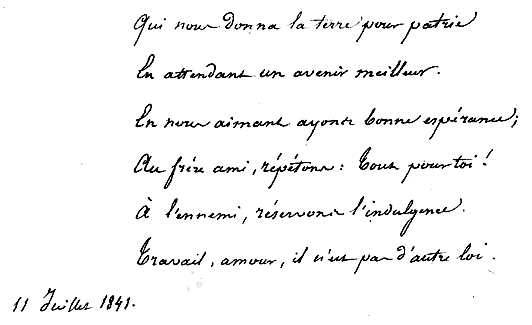 Qui nous donna la terre pour patrie
En attendant un avenir meilleur.
En nous aimant ayons bonne espérance;
Au frère ami, répétons: Tout pour toi!
À l'ennemi, réservons l'indulgence.
Travail, amour, il n'est pas d'autre loi.
11 Juillet 1841.